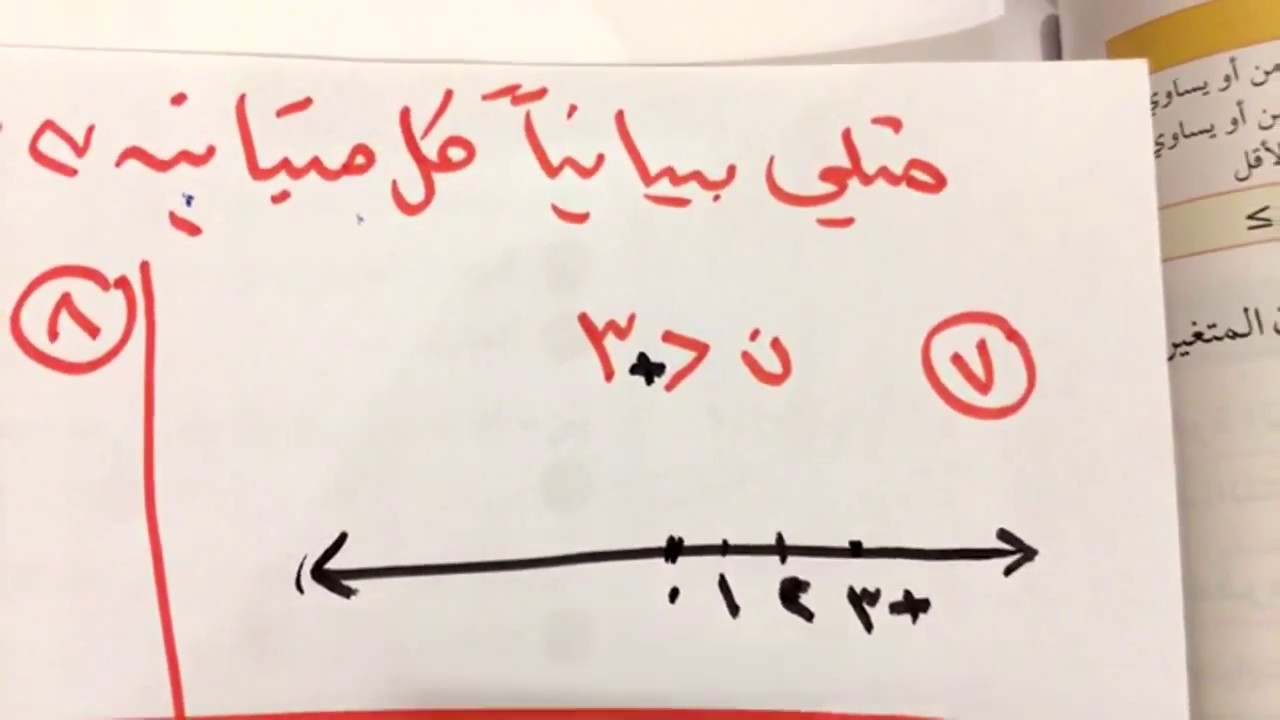 مثلي بيانياً كل متباينه
٧ ن > +٣
٨
٠ ١ ٢ ٣+
من أو يساوي
ن أو يساوي
لأقل
≥
المتغير